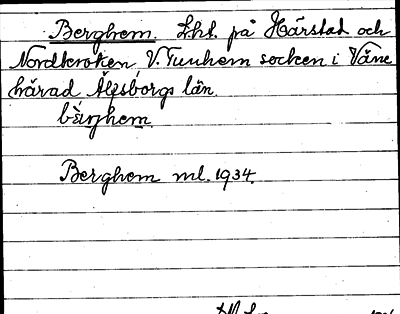 Berghem. Lht. på Härstad och
Nordkroken V. Tunhem socken i Väne
härad Älvsborgs län.
Berghem ml. 1934.